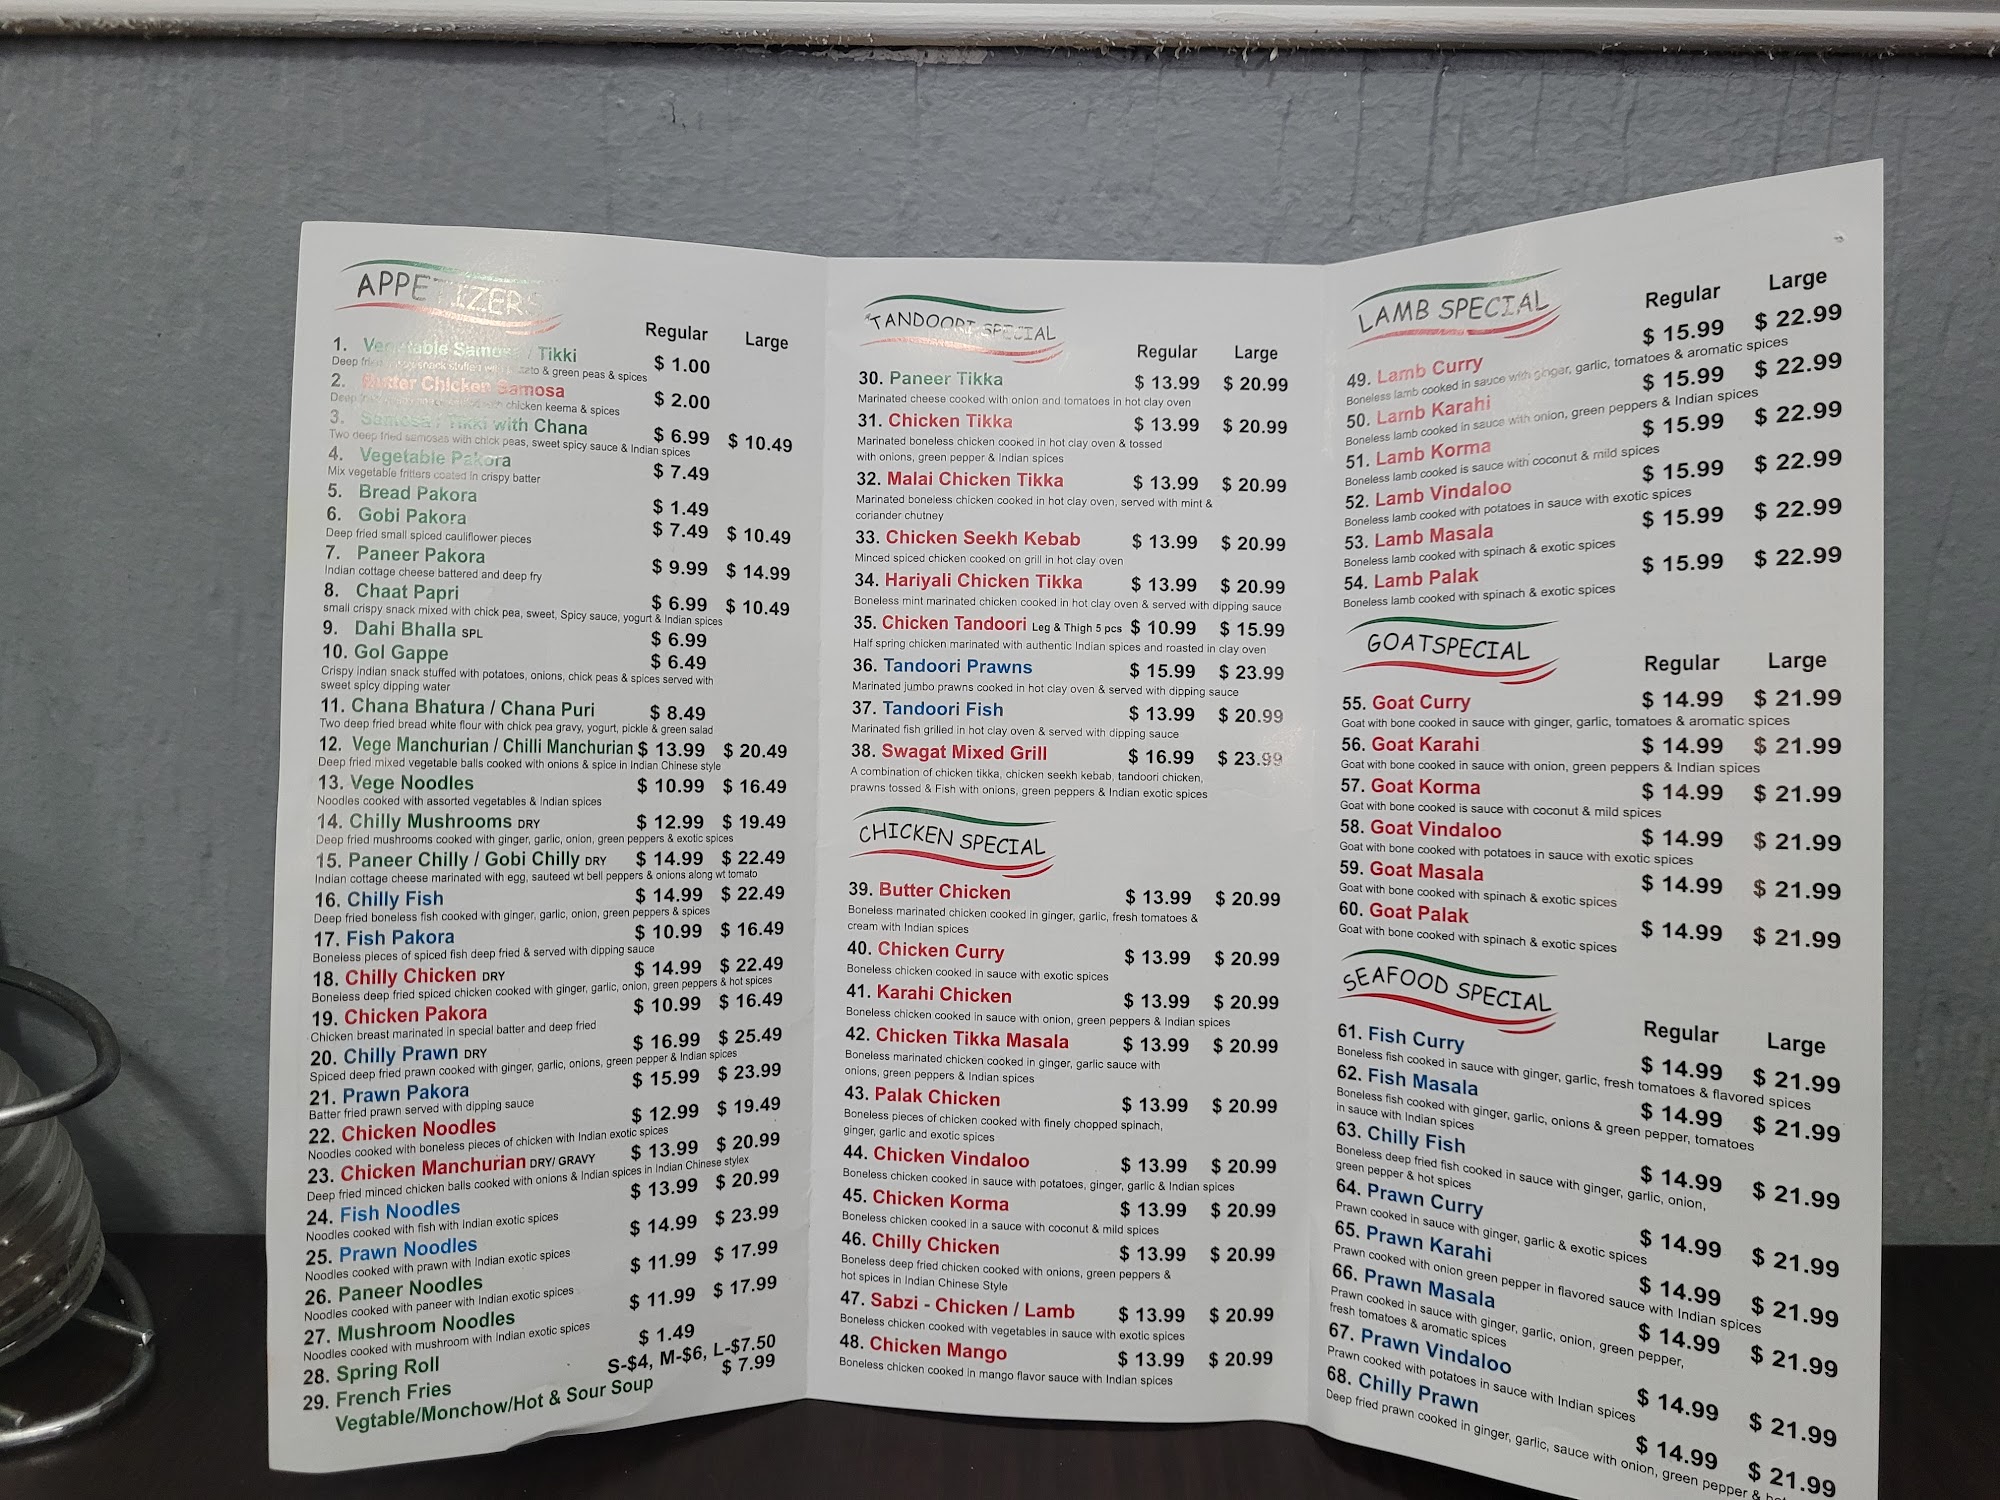 APPETIZERS
Regular Large
1. Vegetable Samosa / Tikki $ 1.00
Deep fried & green peas & spices
2. Butter Chicken Samosa $ 2.00
Deep chicken keema & spices
3. Samosa / Tikki with Chana $ 6.99 $ 10.49
Two deep fried samoses with chick peas, sweet spicy sauce & Indian spices
4. Vegetable Pakora $ 7.49
Mix vegetable fritters coated in crispy batter
5. Bread Pakora $ 1.49
6. Gobi Pakora $ 7.49 $ 10.49
Deep fried small spiced cauliflower pieces
7. Paneer Pakora $ 9.99 $ 14.99
Indian cottage cheese battered and deep fry
8. Chaat Papri $ 6.99 $ 10.49
small crispy snack mixed with chick pea, sweet, Spicy sauce, yogurt & Indian spices
9. Dahi Bhalla SPL $ 6.99
10. Gol Gappe $ 6.49
Crispy indian snack stuffed with potatoes, onions, chick peas & spices served with
sweet spicy dipping water
11. Chana Bhatura / Chana Puri $ 8.49
Two deep fried bread white flour with chick pea gravy, yogurt, pickle & green salad
12. Vege Manchurian / Chilli Manchurian $ 13.99 $ 20.49
Deep fried mixed vegetable balls cooked with onions & spice in Indian Chinese style
13. Vege Noodles $ 10.99 $ 16.49
Noodles cooked with assorted vegetables & Indian spices
14. Chilly Mushrooms DRY $ 12.99 $ 19.49
Deep fried mushrooms cooked with ginger, garlic, onion, green peppers & exotic spices
15. Paneer Chilly / Gobi Chilly DRY $ 14.99 $ 22.49
Indian cottage cheese marinated with egg, sauteed wt bell peppers & onions along wt tomato
16. Chilly Fish $ 14.99 $ 22.49
Deep fried boneless fish cooked with ginger, garlic, onion, green peppers & spices
17. Fish Pakora $ 10.99 $ 16.49
Boneless pieces of spiced fish deep fried & served with dipping sauce
18. Chilly Chicken DRY $ 14.99 $ 22.49
Boneless deep fried spiced chicken cooked with ginger, garlic, onion, green peppers & hot spices
19. Chicken Pakora $ 10.99 $ 16.49
Chicken breast marinated in special batter and deep fried
20. Chilly Prawn DRY $ 16.99 $ 25.49
Spiced deep fried prawn cooked with ginger, garlic, onions, green pepper & Indian spices
21. Prawn Pakora $ 15.99 $ 23.99
Batter fried prawn served with dipping sauce
22. Chicken Noodles $ 12.99 $ 19.49
Noodles cooked with boneless pieces of chicken with Indian exotic spices
23. Chicken Manchurian DRY/ GRAVY $ 13.99 $ 20.99
Deep fried minced chicken balls cooked with onions & Indian spices in Indian Chinese stylex
24. Fish Noodles $ 13.99 $ 20.99
Noodles cooked with fish with Indian exotic spices
25. Prawn Noodles $ 14.99 $ 23.99
Noodles cooked with prawn with Indian exotic spices
26. Paneer Noodles $ 11.99 $ 17.99
Noodles cooked with paneer with Indian exotic spices
27. Mushroom Noodles $ 11.99 $ 17.99
Noodles cooked with mushroom with Indian exotic spices
28. Spring Roll $ 1.49
29. French Fries S-$4, M-$6, L-$7.50
Vegtable/Monchow/Hot & Sour Soup $ 7.99
TANDOORI SPECIAL
Regular Large
30. Paneer Tikka $ 13.99 $ 20.99
Marinated cheese cooked with onion and tomatoes in hot clay oven
31. Chicken Tikka $ 13.99 $ 20.99
Marinated boneless chicken cooked in hot clay oven & tossed
with onions, green pepper & Indian spices
32. Malai Chicken Tikka $ 13.99 $ 20.99
Marinated boneless chicken cooked in hot clay oven, served with mint &
coriander chutney
33. Chicken Seekh Kebab $ 13.99 $ 20.99
Minced spiced chicken cooked on grill in hot clay oven
34. Hariyali Chicken Tikka $ 13.99 $ 20.99
Boneless mint marinated chicken cooked in hot clay oven & served with dipping sauce
35. Chicken Tandoori Leg & Thigh 5 pcs $ 10.99 $ 15.99
Half spring chicken marinated with authentic Indian spices and roasted in clay oven
36. Tandoori Prawns $ 15.99 $ 23.99
Marinated jumbo prawns cooked in hot clay oven & served with dipping sauce
37. Tandoori Fish $ 13.99 $ 20.99
Marinated fish grilled in hot clay oven & served with dipping sauce
38. Swagat Mixed Grill $ 16.99 $ 23.99
A combination of chicken tikka, chicken seekh kebab, tandoori chicken,
prawns tossed & Fish with onions, green peppers & Indian exotic spices
CHICKEN SPECIAL
39. Butter Chicken $ 13.99 $ 20.99
Boneless marinated chicken cooked in ginger, garlic, fresh tomatoes &
cream with Indian spices
40. Chicken Curry $ 13.99 $ 20.99
Boneless chicken cooked in sauce with exotic spices
41. Karahi Chicken $ 13.99 $ 20.99
Boneless chicken cooked in sauce with onion, green peppers & Indian spices
42. Chicken Tikka Masala $ 13.99 $ 20.99
Boneless marinated chicken cooked in ginger, garlic sauce with
onions, green peppers & Indian spices
43. Palak Chicken $ 13.99 $ 20.99
Boneless pieces of chicken cooked with finely chopped spinach,
ginger, garlic and exotic spices
44. Chicken Vindaloo $ 13.99 $ 20.99
Boneless chicken cooked in sauce with potatoes, ginger, garlic & Indian spices
45. Chicken Korma $ 13.99 $ 20.99
Boneless chicken cooked in a sauce with coconut & mild spices
46. Chilly Chicken $ 13.99 $ 20.99
Boneless deep fried chicken cooked with onions, green peppers &
hot spices in Indian Chinese Style
47. Sabzi - Chicken / Lamb $ 13.99 $ 20.99
Boneless chicken cooked with vegetables in sauce with exotic spices
48. Chicken Mango $ 13.99 $ 20.99
Boneless chicken cooked in mango flavor sauce with Indian spices
LAMB SPECIAL
Regular Large
49. Lamb Curry $ 15.99 $ 22.99
Boneless lamb cooked in sauce with ginger, garlic, tomatoes & aromatic spices
50. Lamb Karahi $ 15.99 $ 22.99
Boneless lamb cooked in sauce with onion, green peppers & Indian spices
51. Lamb Korma $ 15.99 $ 22.99
Boneless lamb cooked is sauce with coconut & mild spices
52. Lamb Vindaloo $ 15.99 $ 22.99
Boneless lamb cooked with potatoes in sauce with exotic spices
53. Lamb Masala $ 15.99 $ 22.99
Boneless lamb cooked with spinach & exotic spices
54. Lamb Palak $ 15.99 $ 22.99
Boneless lamb cooked with spinach & exotic spices
GOATSPECIAL
Regular Large
55. Goat Curry $ 14.99 $ 21.99
Goat with bone cooked in sauce with ginger, garlic, tomatoes & aromatic spices
56. Goat Karahi $ 14.99 $ 21.99
Goat with bone cooked in sauce with onion, green peppers & Indian spices
57. Goat Korma $ 14.99 $ 21.99
Goat with bone cooked is sauce with coconut & mild spices
58. Goat Vindaloo $ 14.99 $ 21.99
Goat with bone cooked with potatoes in sauce with exotic spices
59. Goat Masala $ 14.99 $ 21.99
Goat with bone cooked with spinach & exotic spices
60. Goat Palak $ 14.99 $ 21.99
Goat with bone cooked with spinach & exotic spices
SEAFOOD SPECIAL
Regular Large
61. Fish Curry $ 14.99 $ 21.99
Boneless fish cooked in sauce with ginger, garlic, fresh tomatoes & flavored spices
62. Fish Masala $ 14.99 $ 21.99
Boneless fish cooked with ginger, garlic, onions & green pepper, tomatoes
in sauce with Indian spices
63. Chilly Fish $ 14.99 $ 21.99
Boneless deep fried fish cooked in sauce with ginger, garlic, onion,
green pepper & hot spices
64. Prawn Curry $ 14.99 $ 21.99
Prawn cooked in sauce with ginger, garlic & exotic spices
65. Prawn Karahi $ 14.99 $ 21.99
Prawn cooked with onion green pepper in flavored sauce with Indian spices
66. Prawn Masala $ 14.99 $ 21.99
Prawn cooked in sauce with ginger, garlic, onion, green pepper,
fresh tomatoes & aromatic spices
67. Prawn Vindaloo $ 14.99 $ 21.99
Prawn cooked with potatoes in sauce with Indian spices
68. Chilly Prawn $ 14.99 $ 21.99
Deep fried prawn cooked in ginger, garlic, sauce with onion, green pepper &